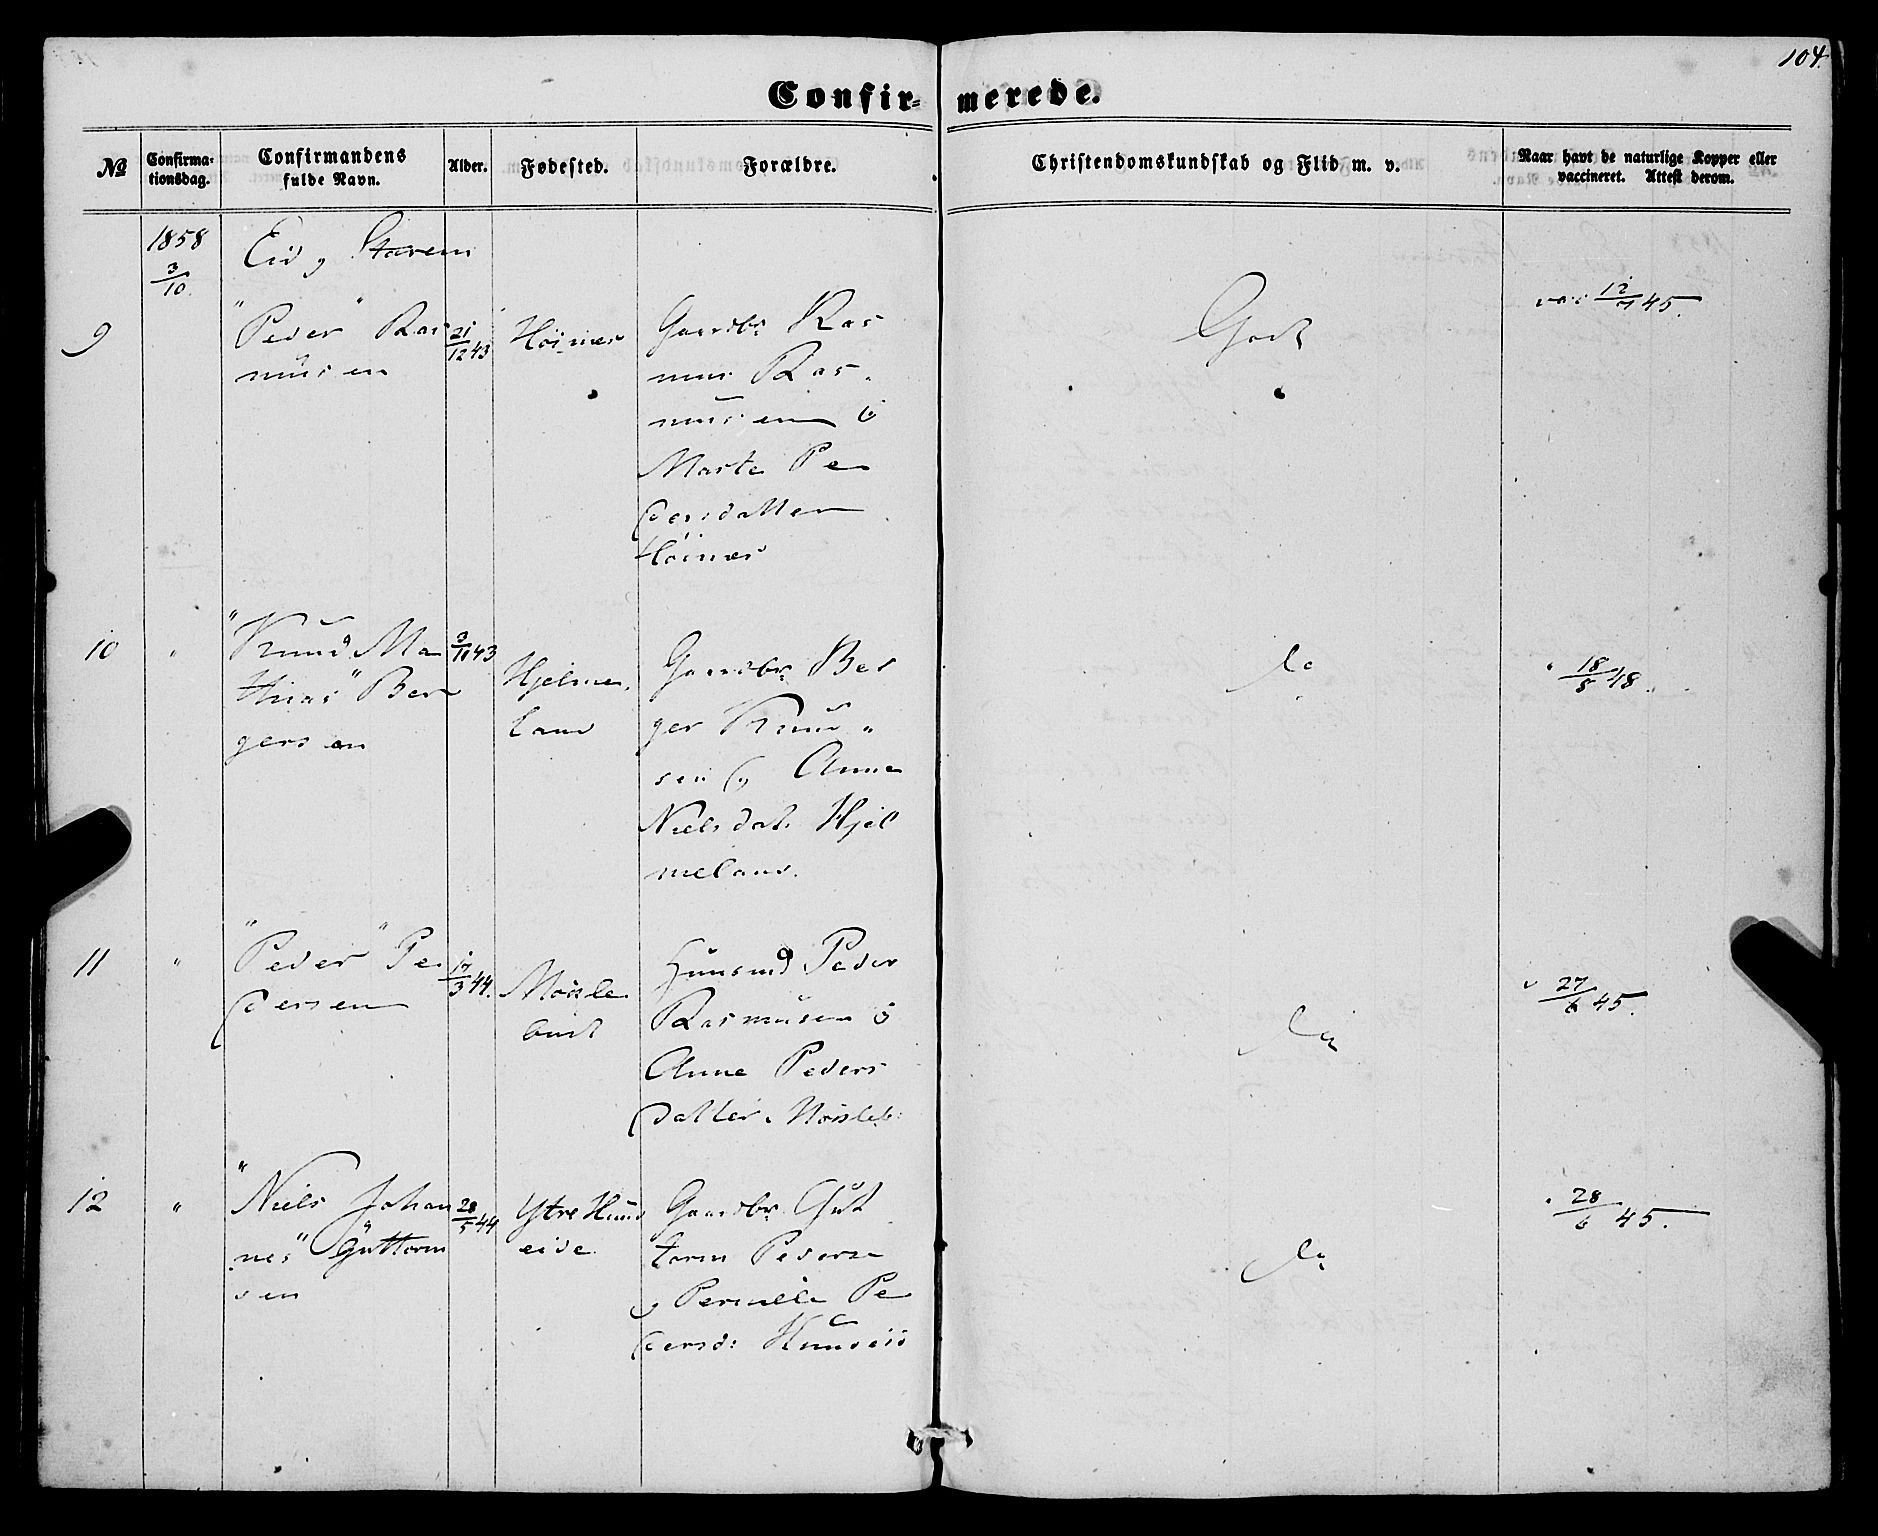 104.
Confir- merede.
№
Confirma-
tionsdag.
Confirmandens
fulde Navn.
Alder.
Fødested.
Forældre.
Christendomskundskab og Flid m. v.
Naar havt de naturlige Kopper eller
vaccineret. Attest derom.
1858
3/10.
Eid, Starem
9
"Peder" Ras
musen
21/12 43
Höinæs
Gaardbr. Ras
mus Ras-
musen &
Marte Pe
dersdatter
Höinæs
Godt
vac. 12/7 45.
10
"
"Knud Ma
thias" Ber
gersen
3/11 43
Hjelme-
land
Gaardbr. Ber
ger Knud-
sen & Anne
Nielsdat. Hjel
meland.
do
" 18/5 48.
11
"
"Peder" Pe
dersen
17/3 44.
Mösle
bust
Huusmd Peder
Rasmusen &
Anne Peders
datter. Mösleb:
do
v 27/6 45.
12
"
"Niels Johan
nes" Guttorm
sen
28/5 44
Ytre Hund
eide
Gaardbr. Gut
torm Peders
& Pernille Pe
dersd: Hundeid
do
" 28/6 45.